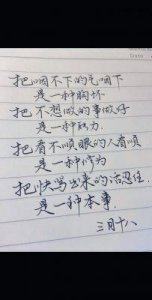 把咽不下的气咽下
是一种胸怀
把不想做的事做好
是一种能力
把看不顺眼的人看顺
是一种修为
把快骂出来的话忍住
是一种本事
三月十八